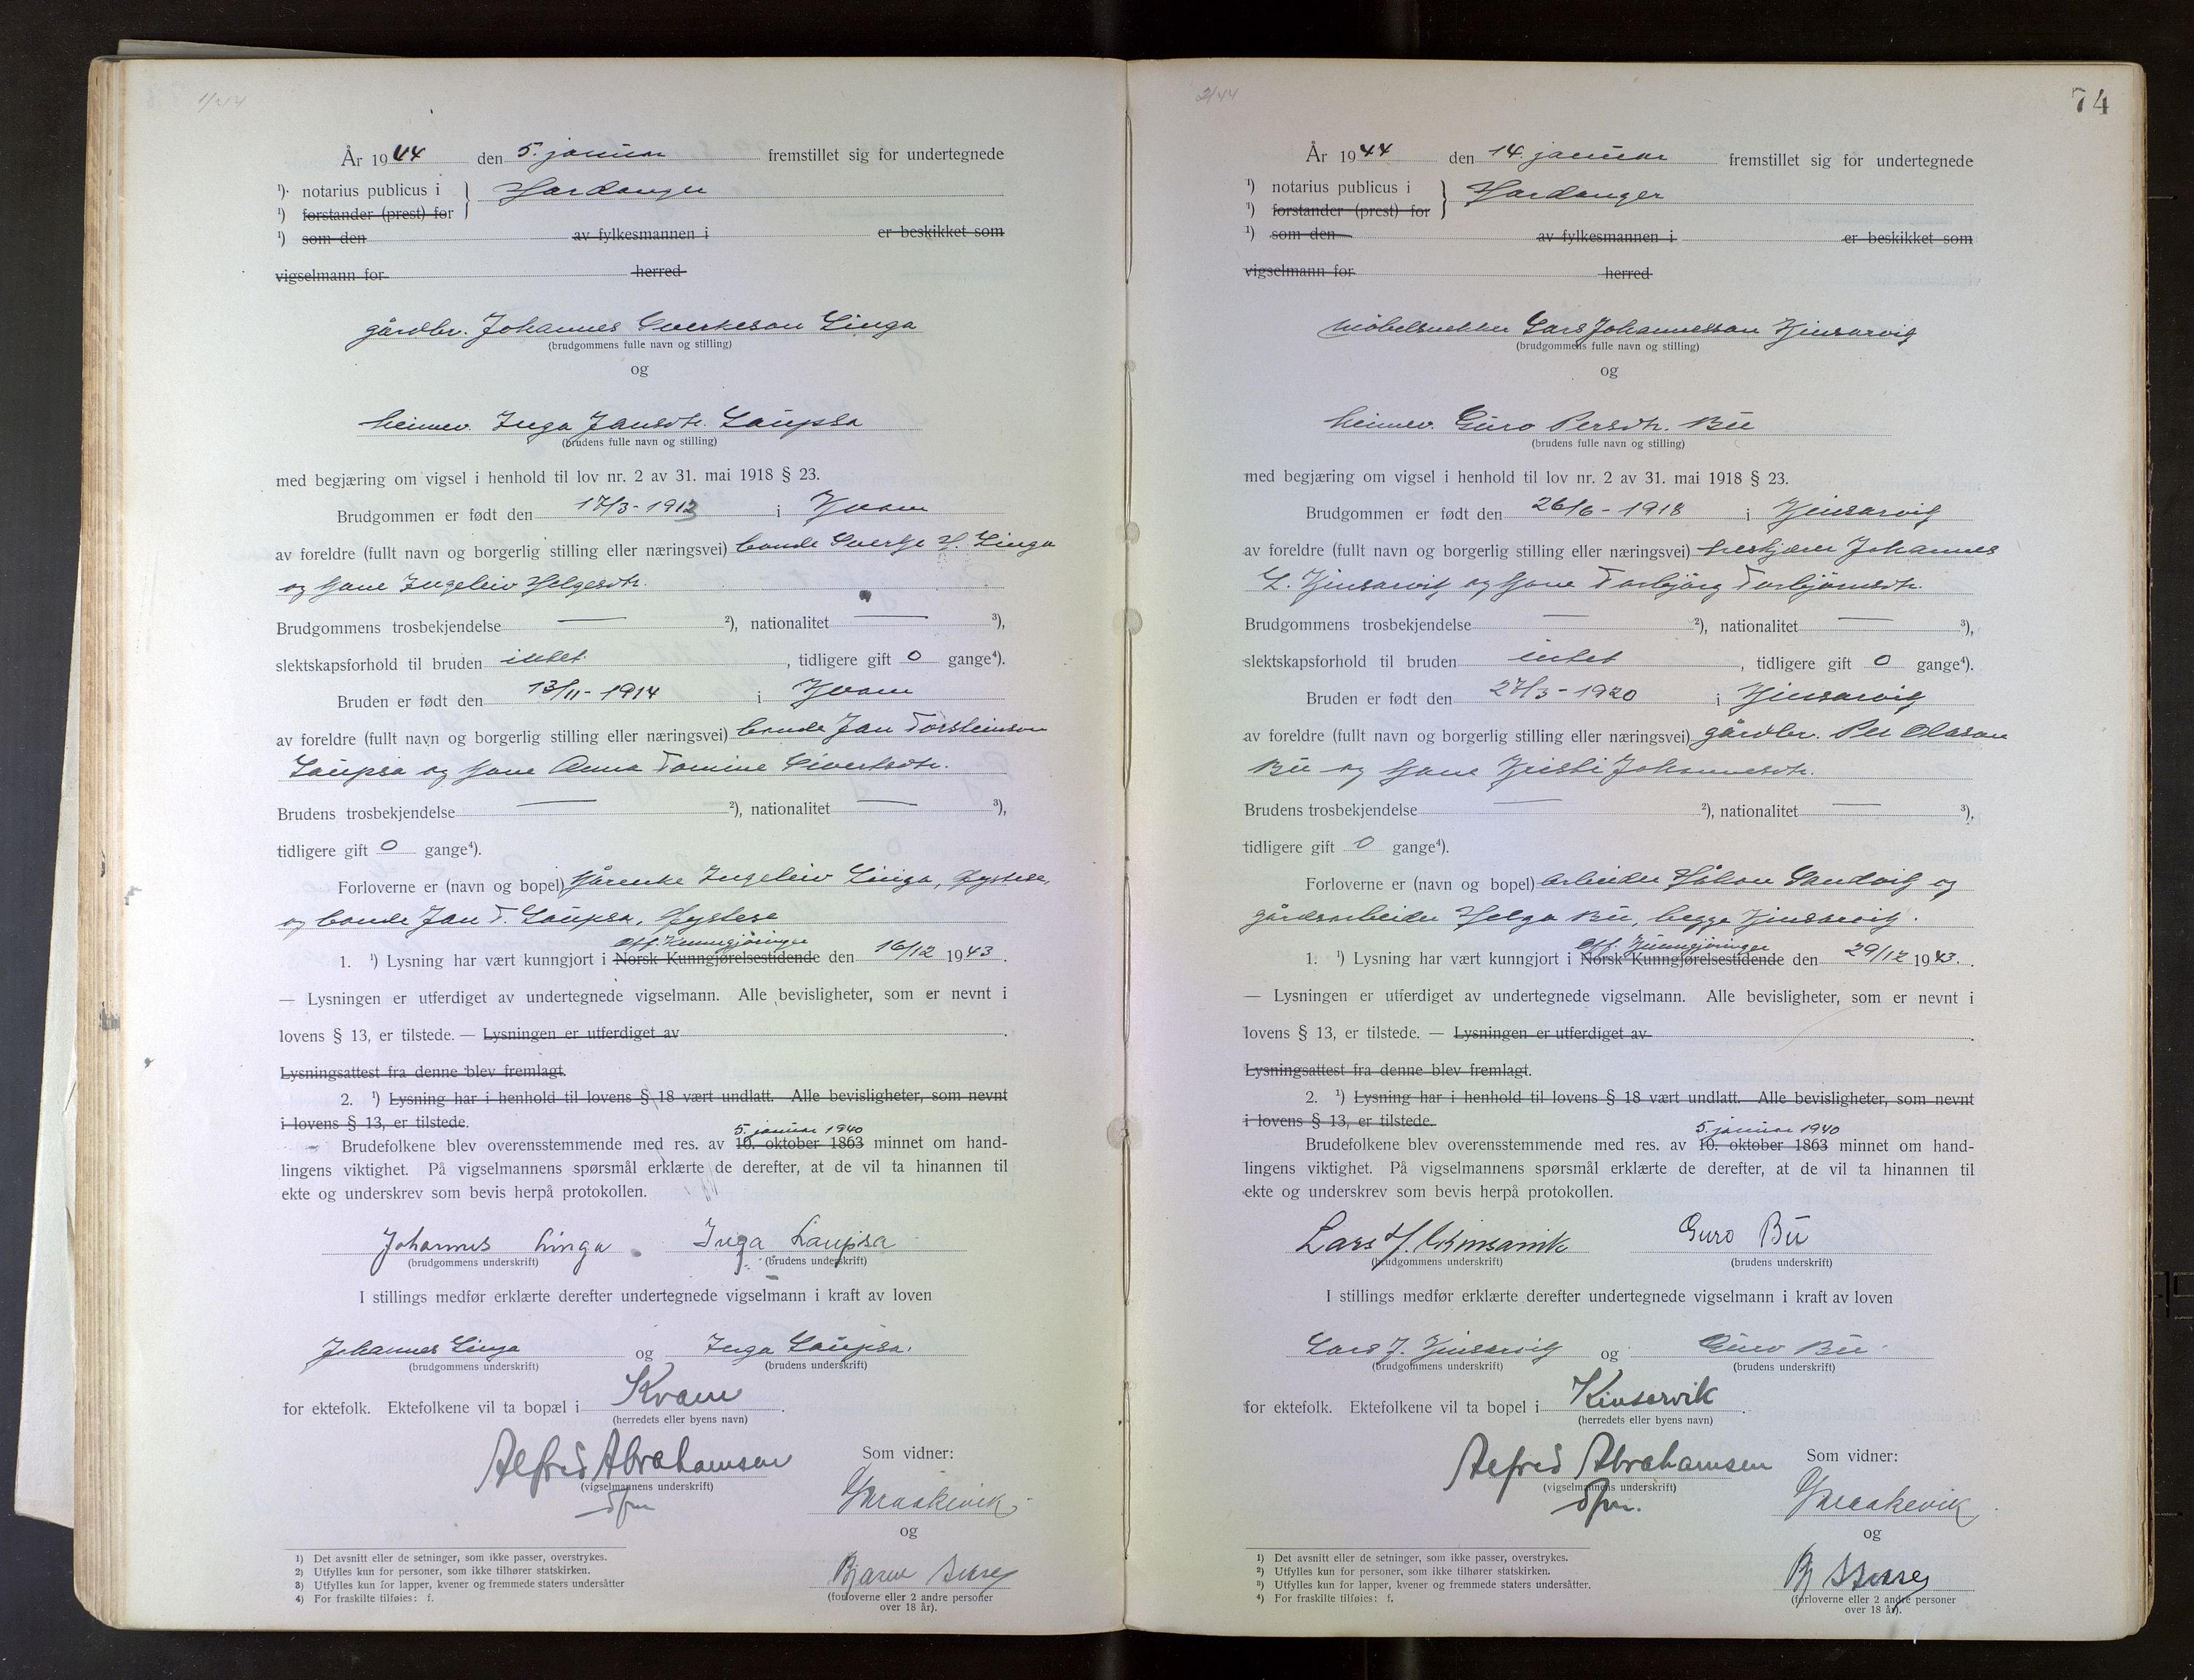 1/44
År 1944 den 5. januar fremstillet sig for undertegnede
¹) notarius publicus i } Hardanger
¹) forstander (prest) for
¹) som den av fylkesmannen i er beskikket som
vigselmann for herred
gårdbr. Johannes Sverkeson Linga
(brudgommens fulle navn og stilling)
og
heimev. Inga Jansdtr. Laupsa
(brudens fulle navn og stilling)
med begjæring om vigsel i henhold til lov nr. 2 av 31. mai 1918 § 23.
Brudgommen er født den 17/3 - 1913 i Kvam
av foreldre (fullt navn og borgerlig stilling eller næringsvei) bonde Sverkje H. Linga
og kone Ingeleiv Helgesdtr.
Brudgommens trosbekjendelse — ²), nationalitet — ³),
slektskapsforhold til bruden intet , tidligere gift 0 gange⁴).
Bruden er født den 13/11 - 1914 i Kvam
av foreldre (fullt navn og borgerlig stilling eller næringsvei) bonde Jan Torsteinson
Laupsa og kone Anna Tomine Sivertsdtr.
Brudens trosbekjendelse — ²), nationalitet — ³),
tidligere gift 0 gange⁴).
Forloverne er (navn og bopel) kårenke Ingeleiv Linga, Øystese,
og bonde Jan T. Laupsa, Øystese
Off. Kunngjøringer
1. ¹) Lysning har vært kunngjort i Norsk Kunngjørelsestidende den 16/12 1943.
— Lysningen er utferdiget av undertegnede vigselmann. Alle bevisligheter, som er nevnt i
lovens § 13, er tilstede. — Lysningen er utferdiget av .
Lysningsattest fra denne blev fremlagt.
2. ¹) Lysning har i henhold til lovens § 18 vært undlatt. Alle bevisligheter, som nevnt
i lovens § 13, er tilstede.
5. januar 1940
Brudefolkene blev overensstemmende med res. av 10. oktober 1863 minnet om hand-
lingens viktighet. På vigselmannens spørsmål erklærte de derefter, at de vil ta hinannen til
ekte og underskrev som bevis herpå protokollen.
Johannes Linga Inga Laupsa
(brudgommens underskrift) (brudens underskrift)
I stillings medfør erklærte derefter undertegnede vigselmann i kraft av loven
Johannes Linga og Inga Laupsa.
(brudgommens underskrift) (brudens underskrift)
for ektefolk. Ektefolkene vil ta bopæl i Kvam .
(herredets eller byens navn)
Alfred Abrahamsen Som vidner:
(vigselmannens underskrift)
dfm
og
Bjarne
(forloverne eller 2 andre personer
over 18 år).
1) Det avsnitt eller de setninger, som ikke passer, overstrykes.
2) Utfylles kun for personer, som ikke tilhører statskirken.
3) Utfylles kun for lapper, kvener og fremmede staters undersåtter
4) For fraskilte tilføies: f.
2/44
74
År 1944 den 14. januar fremstillet sig for undertegnede
¹) notarius publicus i } Hardanger
¹) forstander (prest) for
¹) som den av fylkesmannen i er beskikket som
vigselmann for herred
møbelsnekker Lars Johannesson Kinsarvik
(brudgommens fulle navn og stilling)
og
heimev. Guro Persdtr. Bu
(brudens fulle navn og stilling)
med begjæring om vigsel i henhold til lov nr. 2 av 31. mai 1918 § 23.
Brudgommen er født den 26/6 - 1918 i Kinsarvik
av foreldre (fullt navn og borgerlig stilling eller næringsvei) treskjærer Johannes
L. Kinsarvik og kone Torbjørg Torbjørnsdtr.
Brudgommens trosbekjendelse — ²), nationalitet — ³),
slektskapsforhold til bruden intet , tidligere gift 0 gange⁴).
Bruden er født den 27/3 - 1920 i Kinsarvik
av foreldre (fullt navn og borgerlig stilling eller næringsvei) gårdbr. Per Olason
Bu og kone Kristi Johannesdtr.
Brudens trosbekjendelse — ²), nationalitet — ³),
tidligere gift 0 gange⁴).
Forloverne er (navn og bopel) arbeider Håkon Sandvik og
gårdsarbeider Helga Bu, begge Kinsarvik.
Off. Kunngjøringer
1. ¹) Lysning har vært kunngjort i Norsk Kunngjørelsestidende den 29/12 1943.
— Lysningen er utferdiget av undertegnede vigselmann. Alle bevisligheter, som er nevnt i
lovens § 13, er tilstede. — Lysningen er utferdiget av .
Lysningsattest fra denne blev fremlagt.
2. ¹) Lysning har i henhold til lovens § 18 vært undlatt. Alle bevisligheter, som nevnt
i lovens § 13, er tilstede.
5. januar 1940
Brudefolkene blev overensstemmende med res. av 10. oktober 1863 minnet om hand-
lingens viktighet. På vigselmannens spørsmål erklærte de derefter, at de vil ta hinannen til
ekte og underskrev som bevis herpå protokollen.
Lars J. Kinsarvik Guro Bu
(brudgommens underskrift) (brudens underskrift)
I stillings medfør erklærte derefter undertegnede vigselmann i kraft av loven
Lars J. Kinsarvik og Guro Bu
(brudgommens underskrift) (brudens underskrift)
for ektefolk. Ektefolkene vil ta bopel i Kinsarvik .
(herredets eller byens navn)
Alfred Abrahamsen Som vidner:
(vigselmannens underskrift)
dfm.
og
(forloverne eller 2 andre personer
over 18 år).
¹) Det avsnitt eller de setninger, som ikke passer, overstrykes.
²) Utfylles kun for personer, som ikke tilhører statskirken.
³) Utfylles kun for lapper, kvener og fremmede staters undersåtter.
⁴) For fraskilte tilføies: f.